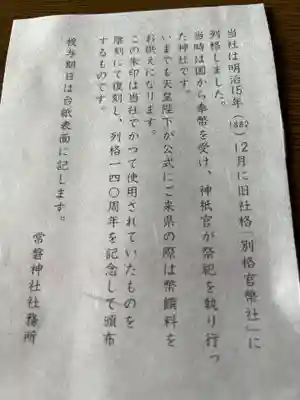 当社は明治15年（1882）12月に旧社格「別格官幣社」に
列格しました。
当時は国から奉幣を受け、神祇官が祭祀を執り行っ
た神社です。
いまでも天皇陛下が公式にご来県の際は幣饌料を
お供えになります。
この朱印は当社でかつて使用されていたものを
陰刻にて復刻し、列格一四〇周年を記念して頒布
するものです。
授与期日は台紙表面に記します。
常磐神社社務所